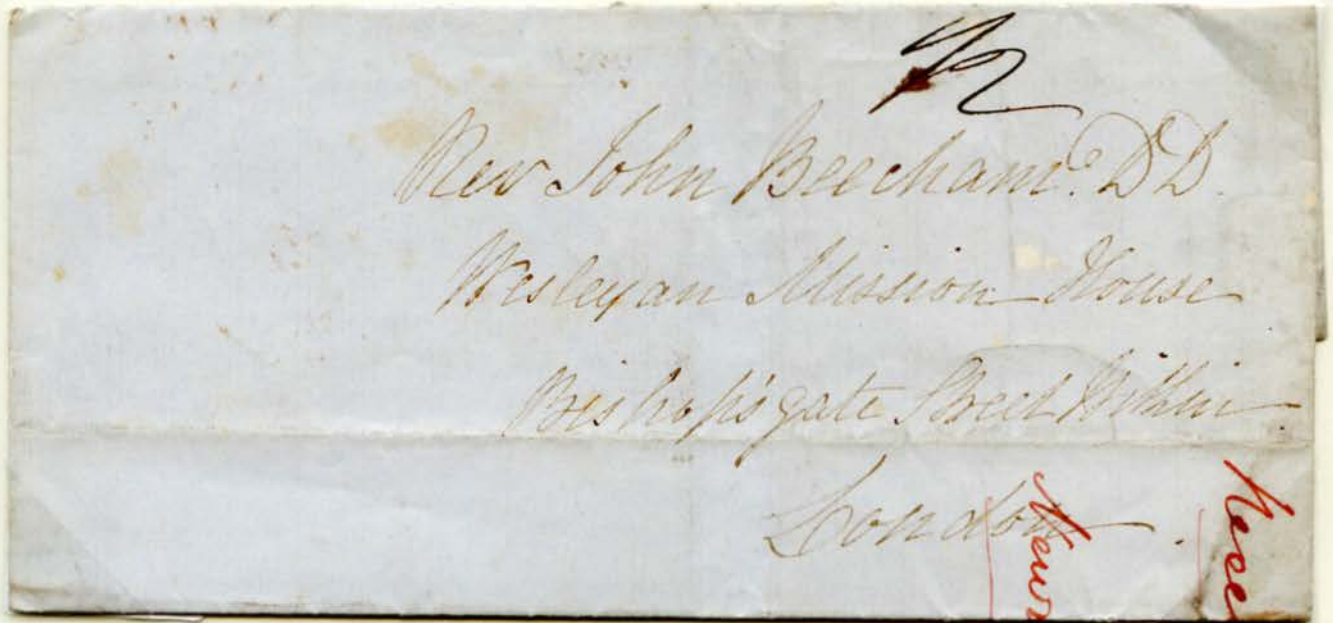 1/2
Rev John Beecham. D D.
Wesleyan Mission House
Bishop'sgate Street Within
London.